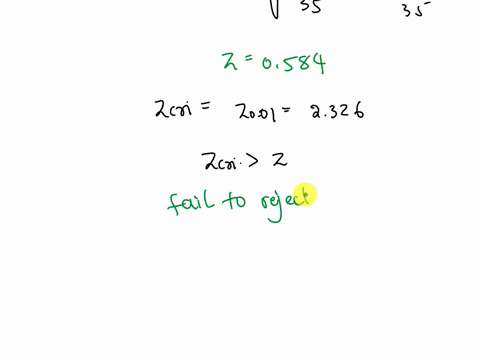 √35 35
Z = 0.584
Zcri = Z0.01 = 2.326
Zcri. > Z
fail to reject